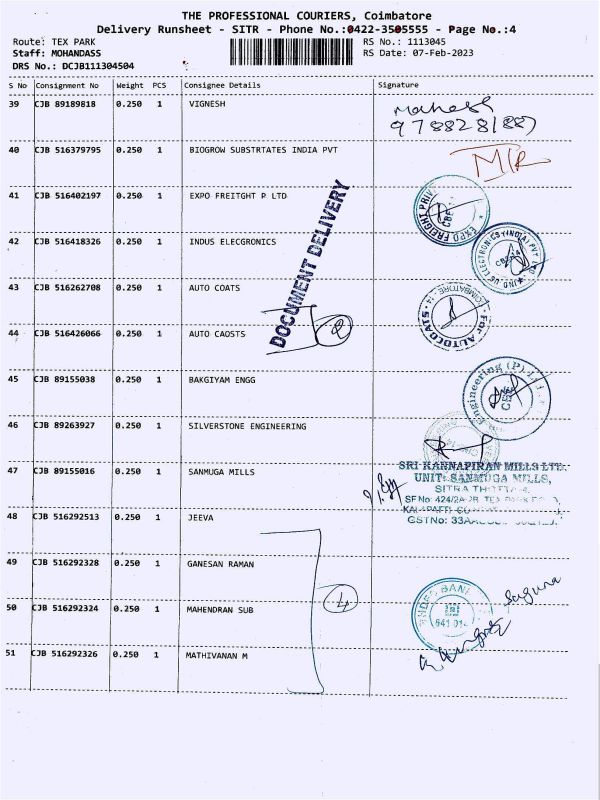 THE PROFESSIONAL COURIERS, Coimbatore
Delivery Runsheet - SITR - Phone No.:0422-3505555 - Page No.:4
Route: TEX PARK
RS No.: 1113045
Staff: MOHANDASS
RS Date: 07-Feb-2023
DRS No.: DCJB111304504
S No Consignment No Weight PCS Consignee Details Signature
39 CJB 89189818 0.250 1 VIGNESH
Mahesh
9788281887
40 CJB 516379795 0.250 1 BIOGROW SUBSTRTATES INDIA PVT
41 CJB 516402197 0.250 1 EXPO FREITGHT P LTD
EXPO FREIGHT PRIV
CBE
42 CJB 516418326 0.250 1 INDUS ELECGRONICS
DOCUMENT DELIVERY
43 CJB 516262708 0.250 1 AUTO COATS
FOR AUTOCOATS
COIMBATORE
44 CJB 516426066 0.250 1 AUTO CAOSTS
2
45 CJB 89155038 0.250 1 BAKGIYAM ENGG
Engineering (P)
46 CJB 89263927 0.250 1 SILVERSTONE ENGINEERING
47 CJB 89155016 0.250 1 SANMUGA MILLS
SRI KANNAPIRAN MILLS LTD.
UNIT: SANMUGA MILLS,
SF No: 424/2A
GST No: 33A
48 CJB 516292513 0.250 1 JEEVA
49 CJB 516292328 0.250 1 GANESAN RAMAN
4
50 CJB 516292324 0.250 1 MAHENDRAN SUB
BANK
641 014
51 CJB 516292326 0.250 1 MATHIVANAN M